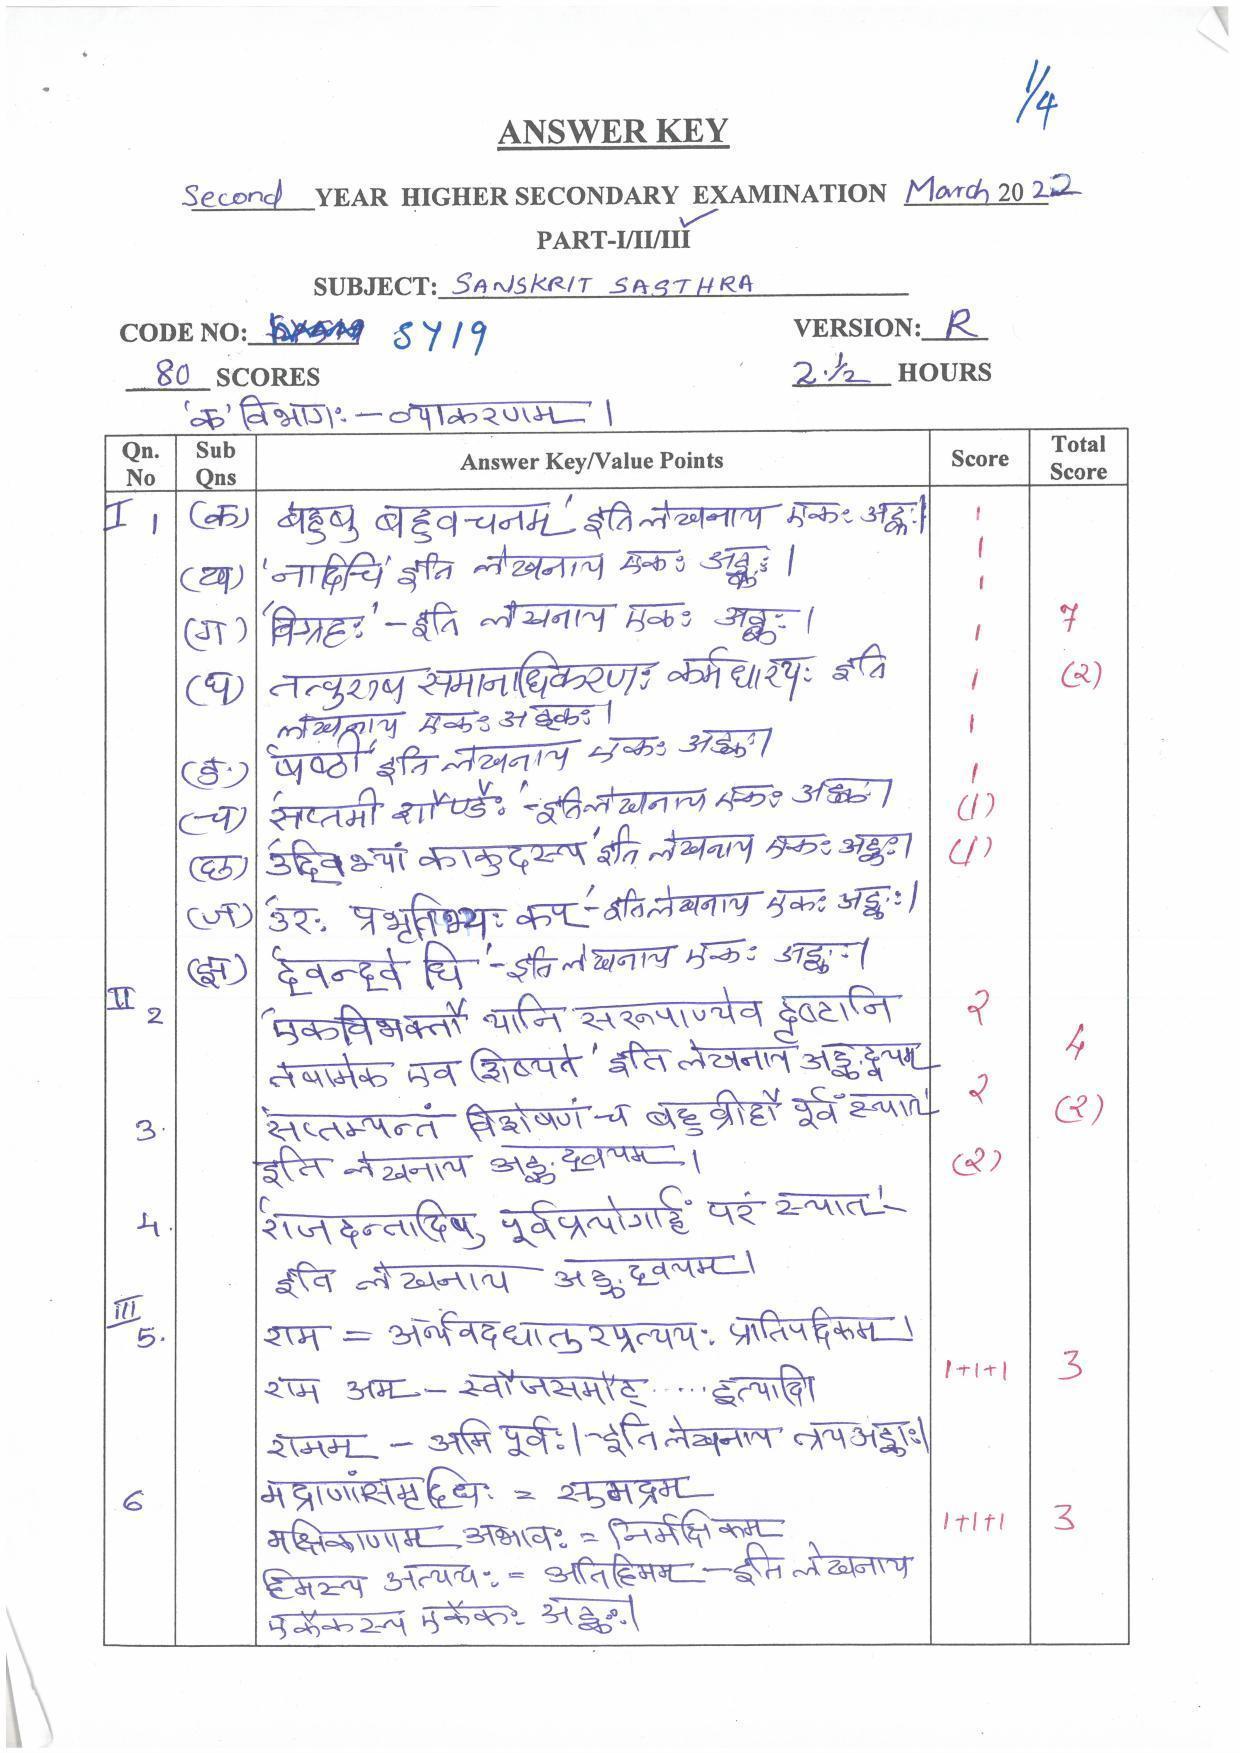 1/4
ANSWER KEY
Second YEAR HIGHER SECONDARY EXAMINATION March 2022
PART-I/II/III
SUBJECT: SANSKRIT SASTHRA
CODE NO: SY19 VERSION: R
80 SCORES 2·½ HOURS
'क' विभागः - व्याकरणम् ।
Qn. No Sub Qns Answer Key/Value Points Score Total Score
I 1 (क) बहुषु बहुवचनम्' इति लेखनाय एकः अङ्कः। 1
(ख) 'नादिचि' इति लेखनाय एकः अङ्कः । 1
(ग) 'विग्रहः' - इति लेखनाय एकः अङ्कः । 1 7
(घ) तत्पुरुष समानाधिकरणः कर्मधारयः इति 1 (२)
लेखनाय एकः अङ्कः। 1
(ङ) षष्ठी' इति लेखनाय एकः अङ्कः। 1
(च) 'सप्तमी शौण्डैः' - इति लेखनाय एकः अङ्कः। 1 (1)
(छ) उद्विभ्यां काकुदस्य' इति लेखनाय एकः अङ्कः। (1)
(ज) 'उरः प्रभृतिभ्यः कप्' - इति लेखनाय एकः अङ्कः।
(झ) द्वन्द्वे घि' - इति लेखनाय एकः अङ्कः।
II 2 'एकविभक्तौ यानि सरूपाण्येव दृष्टानि २
तेषामेक एव शिष्यते' इति लेखनाय अङ्कद्वयम् 4
3. सप्तम्यन्तं विशेषणं च बहुव्रीहौ पूर्वं स्यात्' २ (२)
इति लेखनाय अङ्कद्वयम् । (२)
4. 'राजदन्तादिषु पूर्वप्रयोगार्हं परं स्यात्' -
इति लेखनाय अङ्कद्वयम्।
III
5. राम = अर्थवदधातुरप्रत्ययः प्रातिपदिकम्।
राम अम् - स्वौजसमौट् ..... इत्यादि। 1+1+1 3
रामम् - अमि पूर्वः। - इति लेखनाय त्रय अङ्काः।
6 मद्राणां समृद्धिः = सुमद्रम्
मक्षिकाणाम् अभावः = निर्मक्षिकम् 1+1+1 3
हिमस्य अत्ययः = अतिहिमम् - इति लेखनाय
एकैकस्य एकैकः अङ्कः।